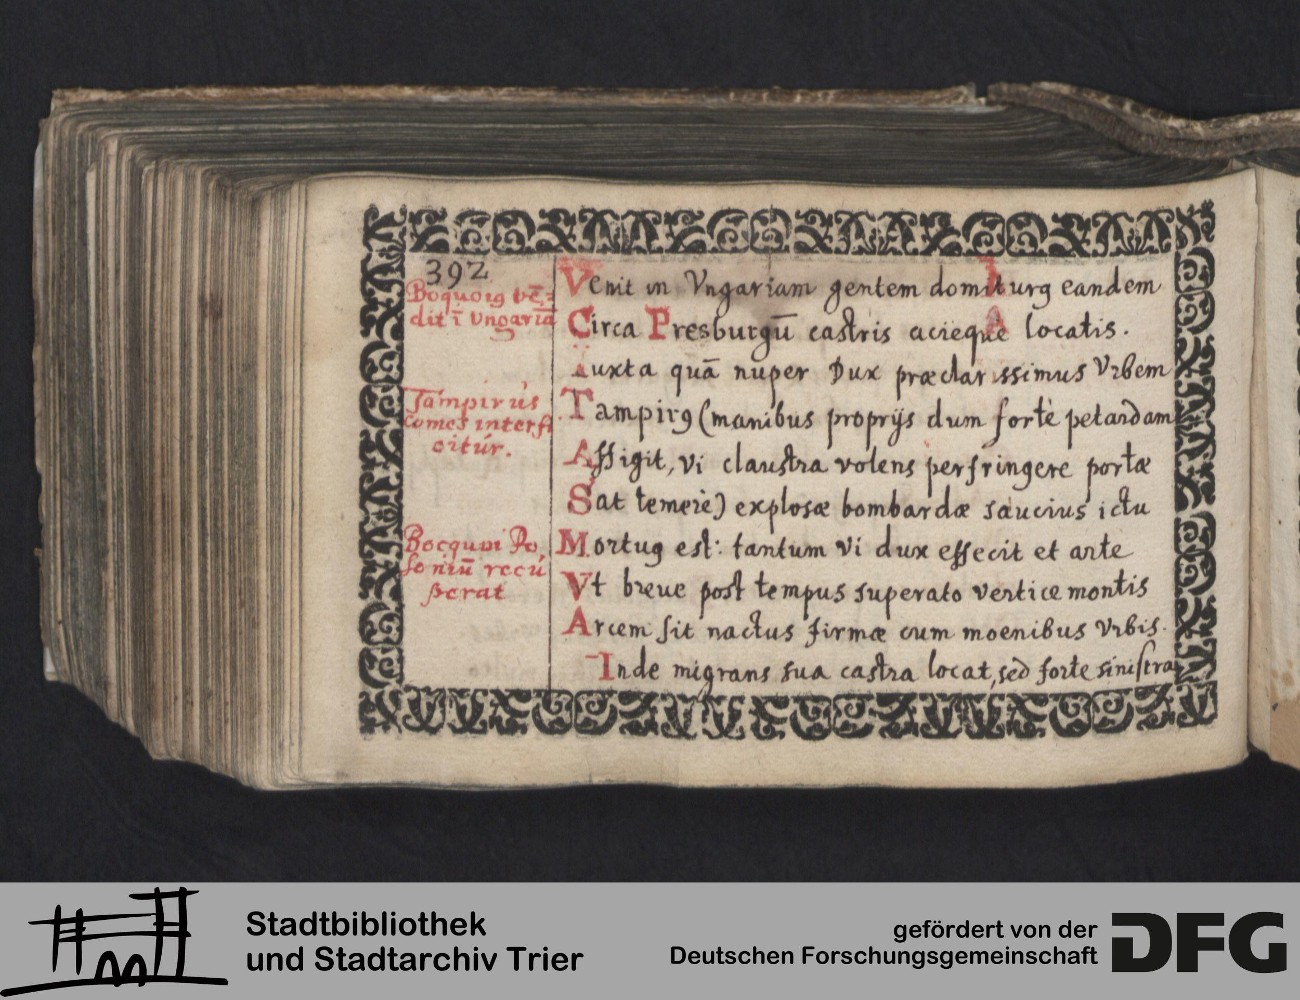 392
Boquoiꝯ vē⸗
dit ī Vngariā
Tampirus
comes interfi
citúr.
Bocquoi Po
soniū recú
perat
Venit in Vngariam gentem domiturꝯ eandem
Circa Presburgū castris acieque locatis.
Iuxta quā nuper Dux præclarissimus Vrbem
Tampirꝯ (manibus proprijs dum fortè petardam
Affigit, vi claustra volens perfringere portæ
Sat temerè) explosæ bombardæ saucius ictu
Mortuꝯ est: tantum vi dux effecit et arte
Vt breue post tempus superato vertice montis
Arcem sit nactus firmæ cum moenibus Vrbis.
Inde migrans sua castra locat, sed forte sinistra
Stadtbibliothek
und Stadtarchiv Trier
gefördert von der
Deutschen Forschungsgemeinschaft
DFG